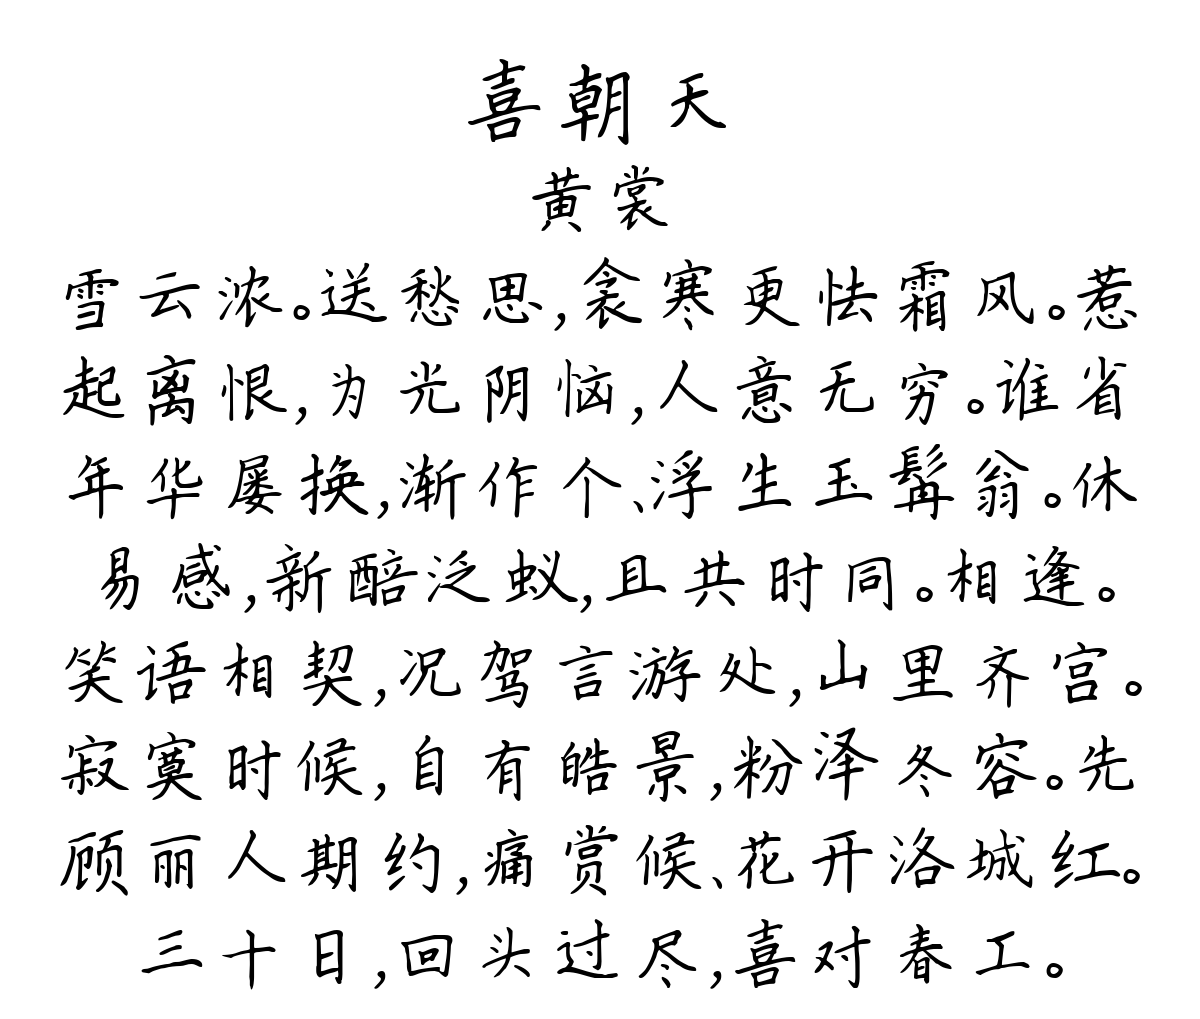 喜朝天
黄裳
雪云浓。送愁思,衾寒更怯霜风。惹
起离恨,为光阴恼,人意无穷。谁省
年华屡换,渐作个、浮生玉髯翁。休
易感,新醅泛蚁,且共时同。相逢。
笑语相契,况驾言游处,山里齐宫。
寂寞时候,自有皓景,粉泽冬容。先
顾丽人期约,痛赏候、花开洛城红。
三十日,回头过尽,喜对春工。